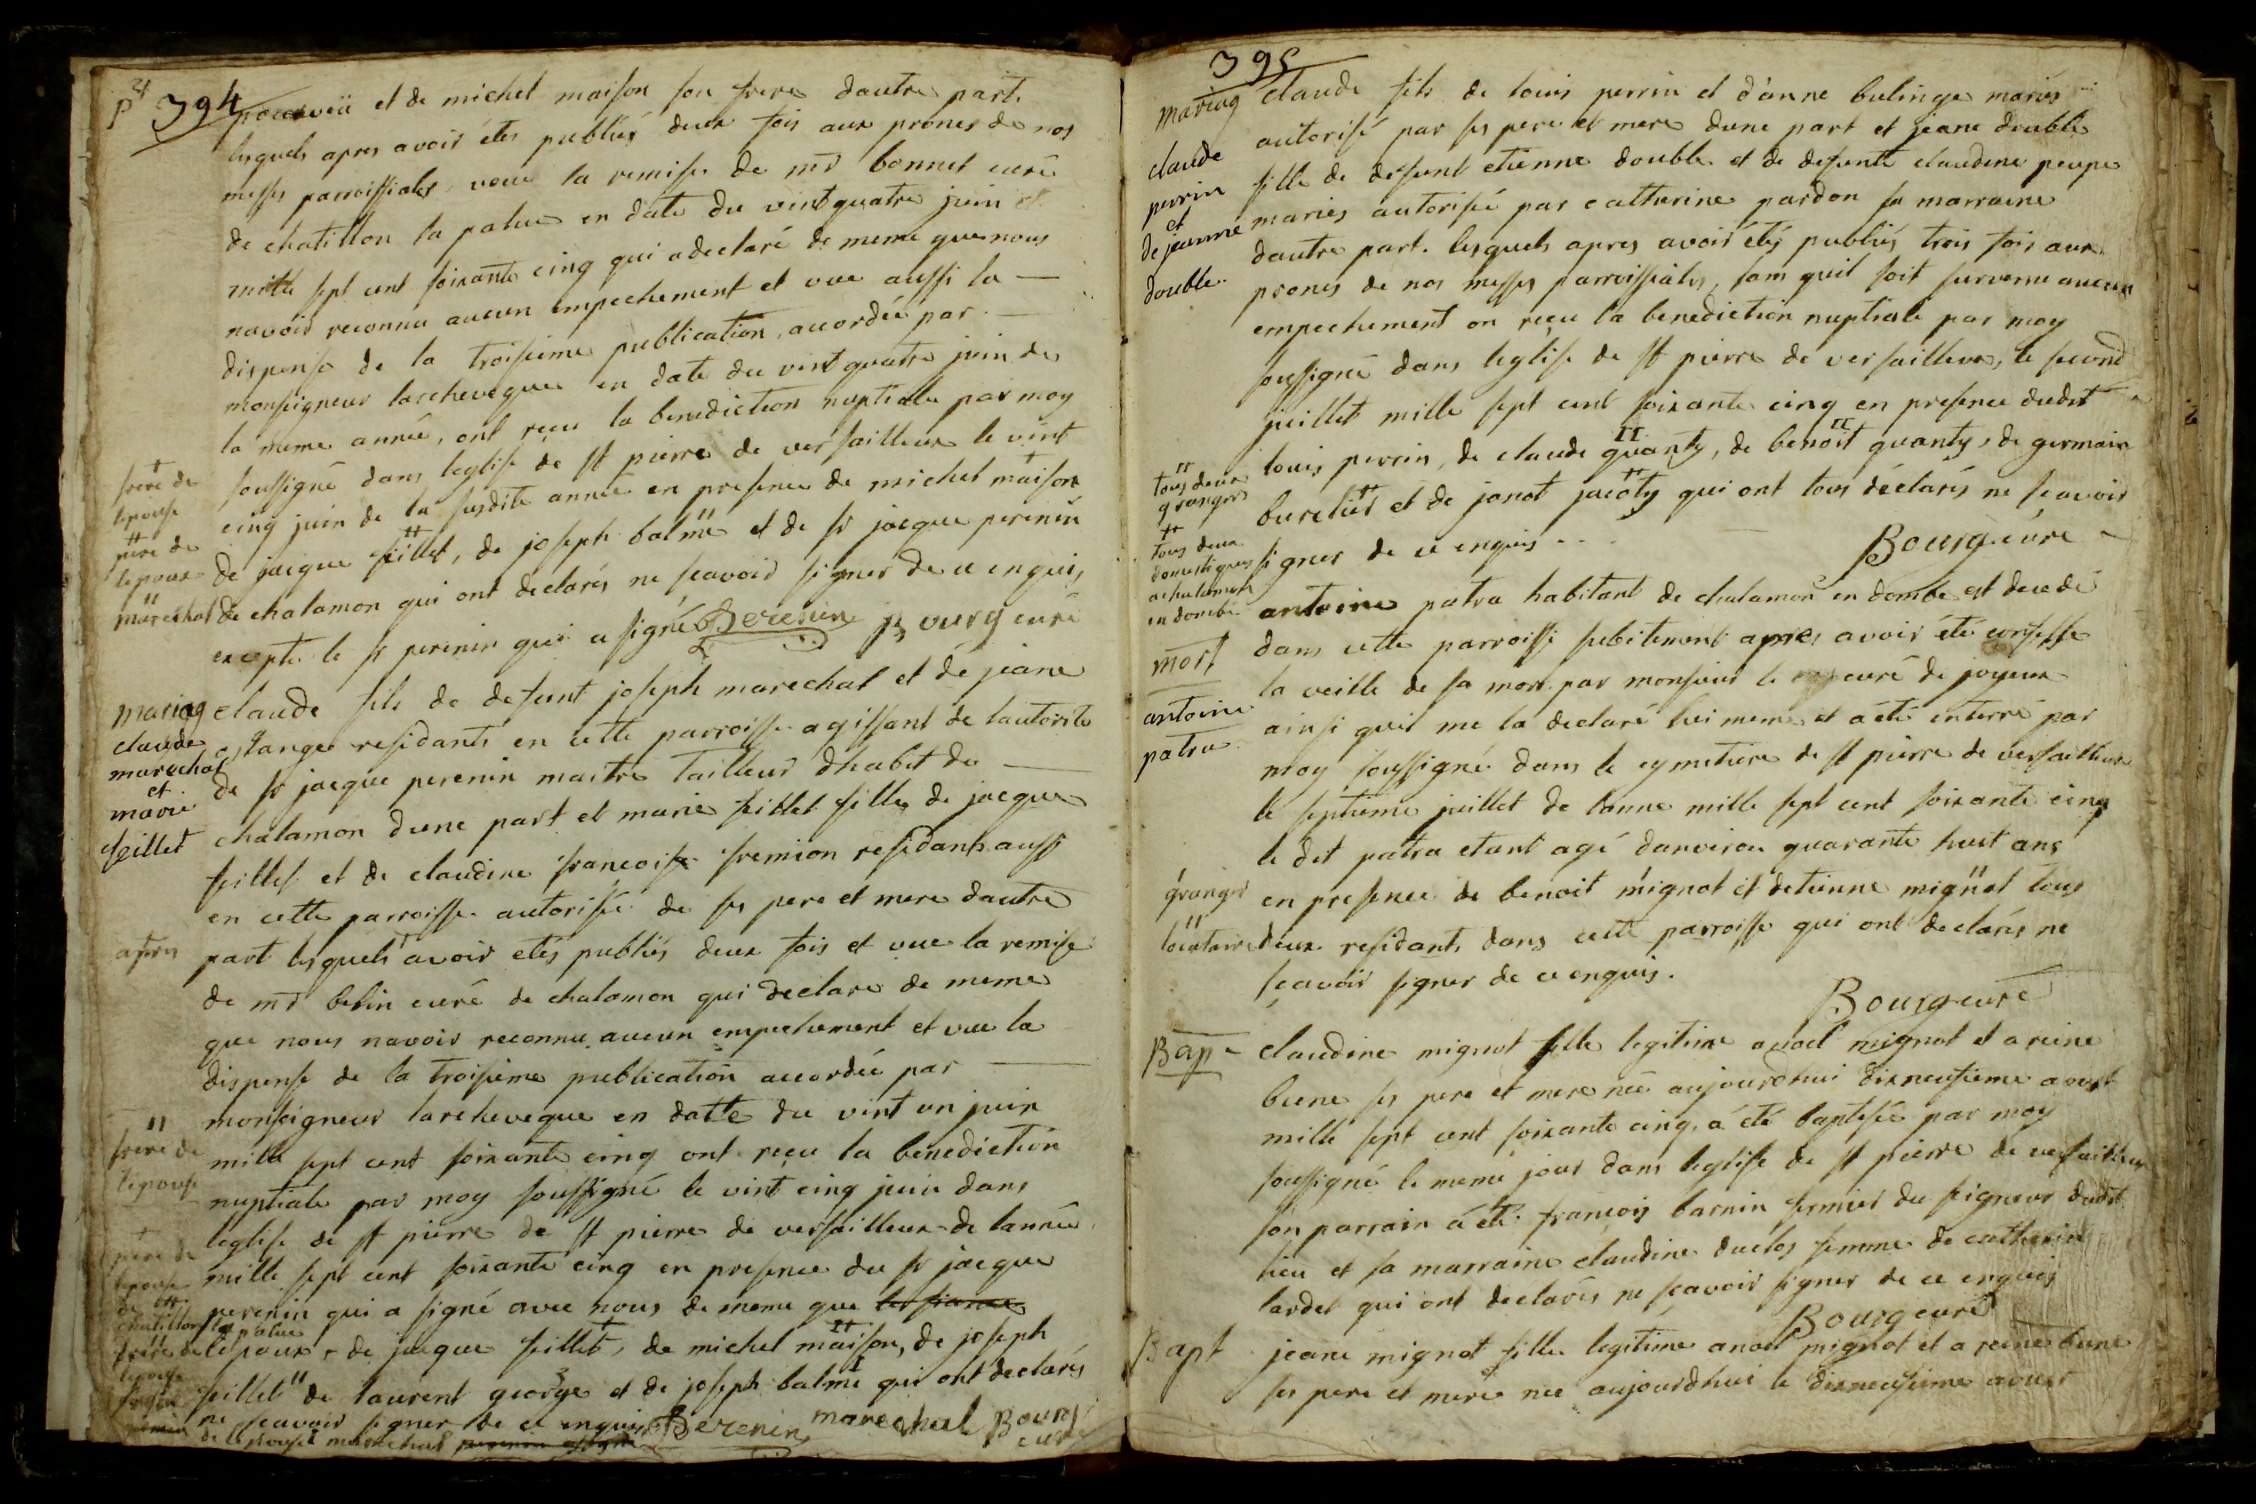 394
pourveü et de michel maison son frere dautre part
lesquels apres avoir étés publiés deux fois aux prones de nos
messes parroissiales, veue la remise de mr bonnet curé
de chatillon la palue en date du vint quatre juin
mille sept cent soixante cinq qui a declaré de meme que nous
navoir reconnu aucun empechement et vue aussi la
dispense de la troisieme publication, accordée par
monseigneur larcheveque en date du vint quatre juin de
la meme année, ont reçu la benediction nuptiale par moy
soussigné dans leglise de st pierre de versailleux le vint
cinq juin de la susdite année en presence de michel maison
de jacque feillet, de joseph balme et de sr jacque perenin
de chalamon qui ont declarés ne scavoir signer de ce enquis
excepté le sr perenin qui a signé Perenin Bourg curé
frere de
lepouse
pere de
lepoux
marechal
mariag
claude
marechal
et
marie
feillet
claude fils de defunt joseph marechal et de jeane
estange residants en cette parroisse agissant de lautorite
de sr jacque perenin maitre tailleur dhabit de
chalamon dune part et marie feillet fille de jacque
feillet et de claudine francoise fremion residants aussi
en cette parroisse autorisée de ses pere et mere dautre
part lesquels avoir etés publiés deux fois et vue la remise
apres
de mr belin curé de chalamon qui declare de meme
que nous navoir reconnu aucun empechement et vue la
dispense de la troisieme publication accordée par
monseigneur larcheveque en datte du vint un juin
mille sept cent soixante cinq ont reçu la benediction
nuptiale par moy soussigné le vint cinq juin dans
leglise de st pierre de st pierre de versailleux de lannée
mille sept cent soixante cinq en presence du sr jacque
perenin qui a signé avec nous de meme que les fiances
lepoux, de jacque feillet, de michel maison, de joseph
feillet de laurent george et de joseph balme qui ont declarés
ne scavoir signer de ce enquis Perenin marechal Bourg
curé
frere de
lepouse
pere de
lepouse
de
chatillon la palue
frere de
lepouse
395
mariag
claude
perrin
et
de jeanne
double
claude fils de louis perrin et d'anne bulinge mariés
autorisé par ses pere et mere dune part et jeane double
fille de defunt etienne double et de defunte claudine peupe
mariés autorisée par catterine pardon sa marraine
dautre part. lesquels apres avoir étés publiés trois fois aux
prones de nos messes parroissiales, sans quil soit survenu aucun
empechement on reçu la benediction nuptiale par moy
soussigné dans leglise de st pierre de versailleux, le second
juillet mille sept cent soixante cinq en presence dudit
louis perrin, de claude quanty, de benoit quanty, de germain
burelier et de janot jacoty qui ont tous déclarés ne scavoir
signer de ce enquis Bourg curé
tous deux
grangers
tous deux
domestiques
a chalamon
en dombe
mort
antoine
patra
antoine patra habitant de chalamon en dombe est decedé
dans cette parroisse subitement apres avoir été confessé
la veille de sa mort par monsieur le curé de joyeux
ainsi quil me la declaré lui meme et a été enterré par
moy soussigné dans le cymetiere de st pierre de versailleux
le septieme juillet de lanne mille sept cent soixante cinq
le dit patra etant agé danviron quarante huit ans
en presence de benoit mignot et detienne mignot tous
deux residants dans cette parroisse qui ont declarés ne
scavoir signer de ce enquis.
Bourg curé
granger
locataire
Bap
claudine mignot fille legitime a noel mignot et a reine
bune ses pere et mere née aujourdhui dixneufieme aoust
mille sept cent soixante cinq, a été baptisée par moy
soussigné le meme jour dans leglise de st pierre de versailleux
son parrain a été françois barnin fermier du seigneur dudit
lieu et sa marraine claudine duclos femme de catherin
lardet qui ont declarés ne scavoir signer de ce enquis
Bourg curé
Bapt
jeane mignot fille legitime a noel mignot et a reine bune
ses pere et mere née aujourdhui le dixneufieme aoust